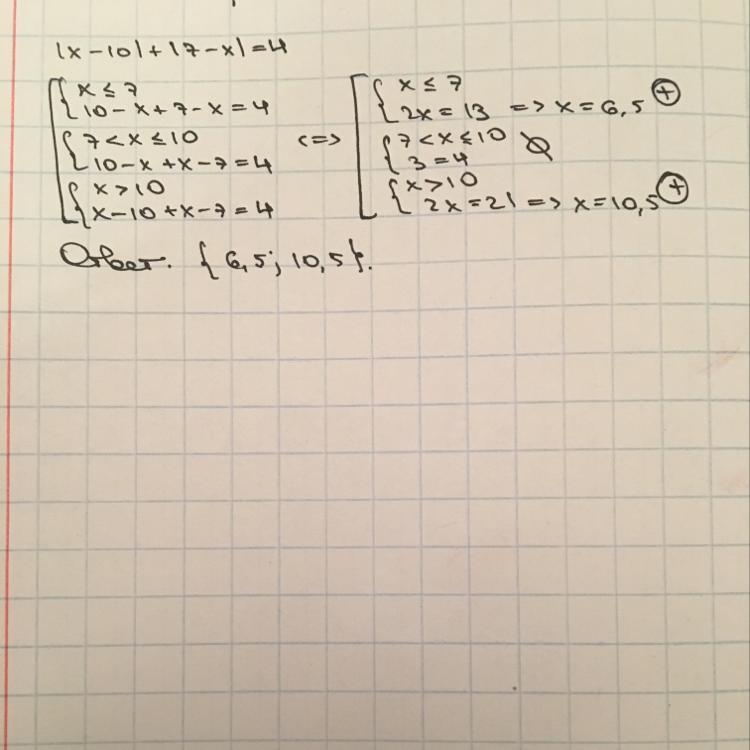 |x-10|+|7-x|=4
[ { x ≤ 7
10-x+7-x=4
{ 7<x≤10
10-x+x-7=4
{ x>10
x-10+x-7=4
<=>
[ { x ≤ 7
2x=13 => x=6,5 ⊕
{ 7<x≤10 ∅
3=4
{ x>10
2x=21 => x=10,5 ⊕
Ответ. {6,5; 10,5}.